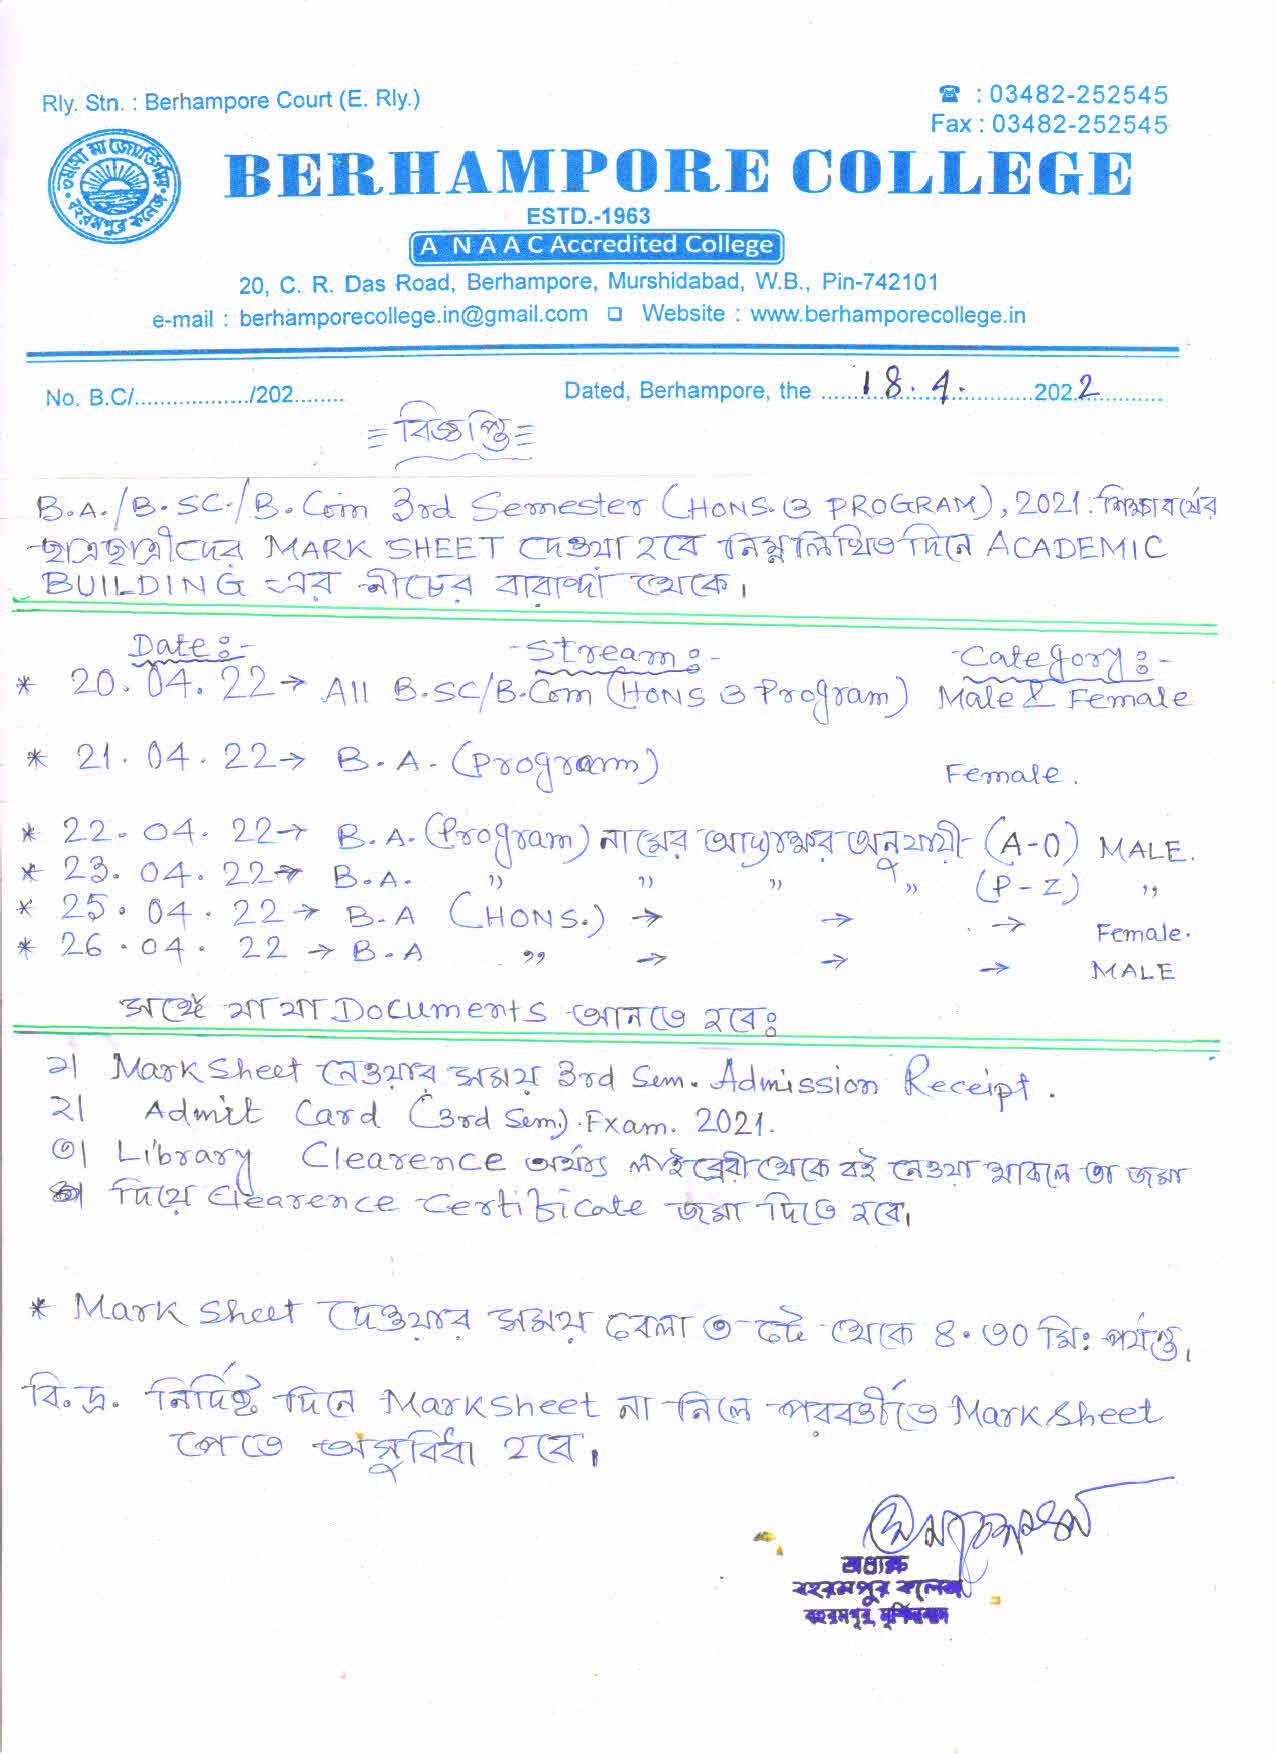 Rly. Stn. : Berhampore Court (E. Rly.)
☎ : 03482-252545
Fax : 03482-252545
BERHAMPORE COLLEGE
ESTD.-1963
A NAAC Accredited College
20, C. R. Das Road, Berhampore, Murshidabad, W.B., Pin-742101
e-mail : berhamporecollege.in@gmail.com ❑ Website : www.berhamporecollege.in
No. B.C/................../202........
Dated, Berhampore, the 18.4. 2022
= বিজ্ঞপ্তি =
B.A./B.SC./B.Com 3rd Semester (HONS. ও PROGRAM), 2021 শিক্ষাবর্ষের
ছাত্রছাত্রীদের MARK SHEET দেওয়া হবে নিম্নলিখিত দিনে ACADEMIC
BUILDING এর নীচের বারান্দা থেকে।
Date :- Stream :- Category :-
* 20.04.22 → All B.SC/B.Com (HONS ও Program) Male & Female
* 21.04.22 → B.A. (Program) Female.
* 22.04.22 → B.A. (Program) নামের আদ্যক্ষর অনুযায়ী (A-O) MALE.
* 23.04.22 → B.A. ,, ,, ,, ,, (P-Z) ,,
* 25.04.22 → B.A (HONS.) → → → Female.
* 26.04.22 → B.A ,, → → → MALE
সঙ্গে যা যা Documents আনতে হবেঃ
১। Mark Sheet নেওয়ার সময় 3rd Sem. Admission Receipt.
২। Admit Card (3rd Sem). Exam. 2021.
৩। Library Clearence অর্থাৎ লাইব্রেরী থেকে বই নেওয়া থাকলে তা জমা
দিয়ে Clearence Certificate জমা দিতে হবে।
* Mark Sheet দেওয়ার সময় বেলা ৩ টে থেকে ৪.৩০ মি: পর্যন্ত।
বি.দ্র. নির্দিষ্ট দিনে Mark Sheet না নিলে পরবর্তীতে Mark Sheet
পেতে অসুবিধা হবে।
অধ্যক্ষ
বহরমপুর কলেজ
বহরমপুর, মুর্শিদাবাদ